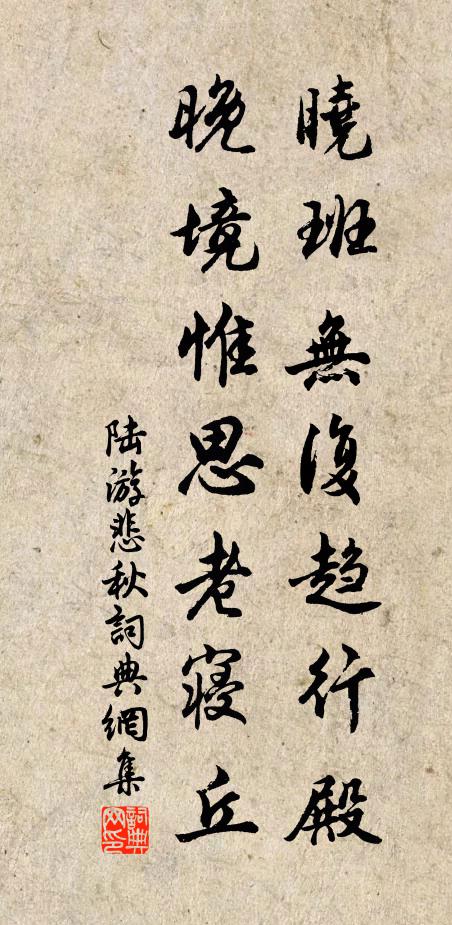 曉班無復趨行殿
晚境惟思老寢丘
陸游悲秋詞典網集
詞典網印